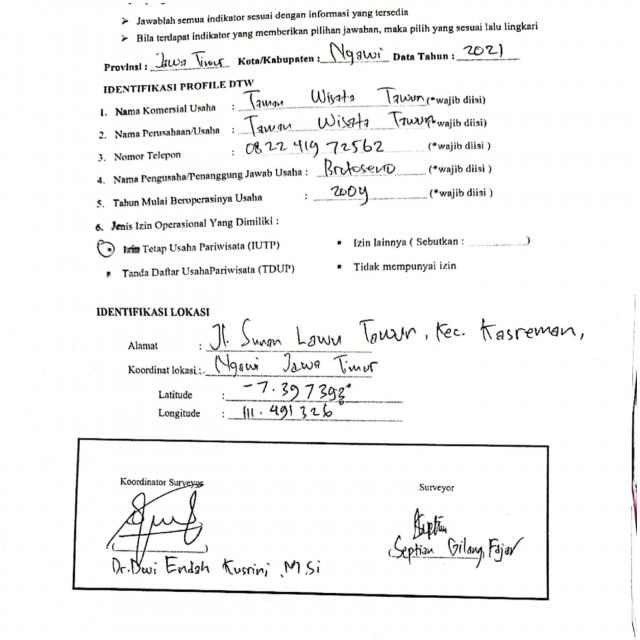 ➤ Jawablah semua indikator sesuai dengan informasi yang tersedia
➤ Bila terdapat indikator yang memberikan pilihan jawaban, maka pilih yang sesuai lalu lingkari
Provinsi : Jawa Timur Kota/Kabupaten : Ngawi Data Tahun : 2021
IDENTIFIKASI PROFILE DTW
1. Nama Komersial Usaha : Taman Wisata Tawun (*wajib diisi)
2. Nama Perusahaan/Usaha : Taman Wisata Tawun (*wajib diisi)
3. Nomor Telepon : 0822 419 72562 (*wajib diisi )
4. Nama Pengusaha/Penanggung Jawab Usaha : Brotoseno (*wajib diisi )
5. Tahun Mulai Beroperasinya Usaha : 2004 (*wajib diisi )
6. Jenis Izin Operasional Yang Dimiliki :
Izin Tetap Usaha Pariwisata (IUTP) ▪ Izin lainnya ( Sebutkan : )
▪ Tanda Daftar UsahaPariwisata (TDUP) ▪ Tidak mempunyai izin
IDENTIFIKASI LOKASI
Alamat : Jl. Sunan Lawu Tawun, Kec. Kasreman,
Koordinat lokasi : Ngawi Jawa Timur
Latitude : -7.397393°
Longitude : 111.491326°
Koordinator Surveyor Surveyor
Septian
Septian Gilang Fajar
Dr. Dwi Endah Kusrini, M Si